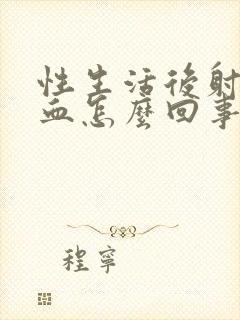 性生活後射
血怎麼回事
程寧